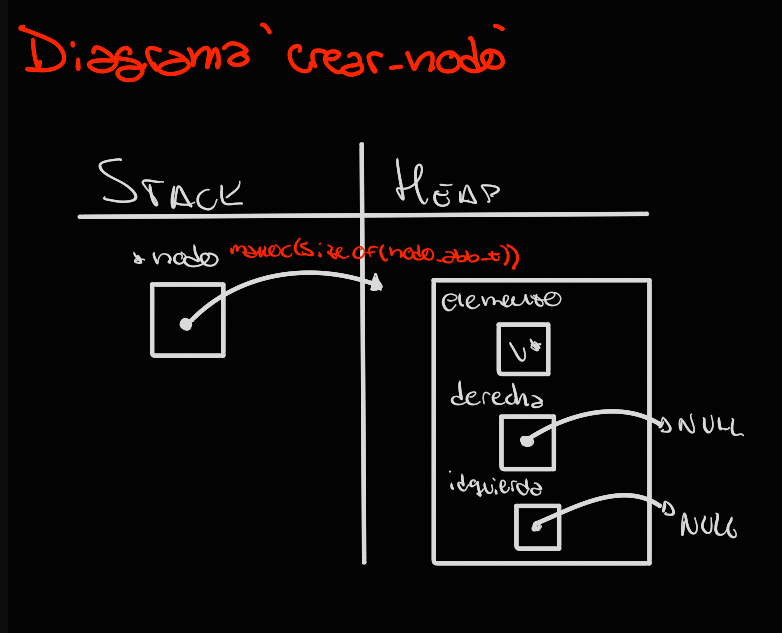 Diagrama `crear_nodo`
STACK
HEAP
* nodo
malloc(sizeof(nodo_abb_t))
elemento
V*
derecha
NULL
izquierda
NULL